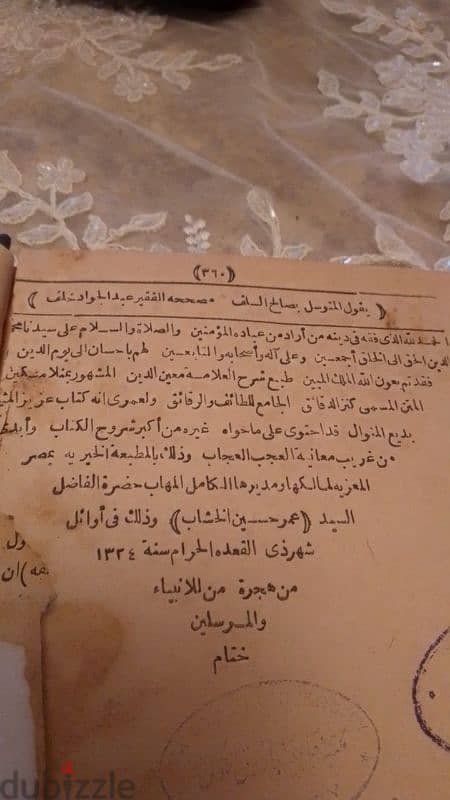 ﴿٣٦٠﴾
﴿ يقول المتوسل بصالح السلف مصححه الفقير عبد الجواد خلف ﴾
الحمد لله الذى فقه فى دينه من أراد من عباده المؤمنين والصلاة والسلام على سيدنا محمد
الدين الحق الى الخلق أجمعين وعلى آله وأصحابه والتابعين لهم باحسان الى يوم الدين
فقد تم بعون الله الملك المبين طبع شرح العلامة معين الدين المشهور بمنلا مسكين
المتن المسمى كنز الدقائق الجامع للطائف والرقائق ولعمرى انه كتاب عزيز المثا
بديع المنوال قد احتوى على ما حواه غيره من أكبر شروح الكتاب وأبدى
من غريب معانيه العجب العجاب وذلك بالمطبعه الخيريه بمصر
المعزيه لمالكها ومديرها الكامل المهاب حضرة الفاضل
السيد ﴿عمر حسين الخشاب﴾ وذلك فى أوائل
شهر ذى القعده الحرام سنة ١٣٢٤
من هجرة من للانبياء
والمرسلين
ختام
ول
مه) ان
dubizzle